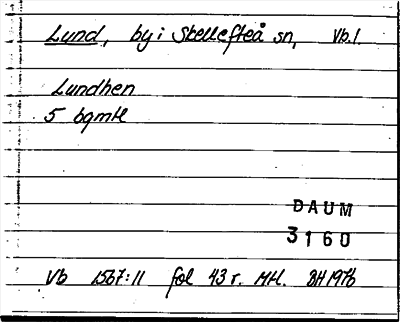 Lund, by i Skellefteå sn, Vb.l.
Lundhen
5 bgmtl
DAUM
3160
Vb 1567:11 fol 43 r. MH. BH 1976